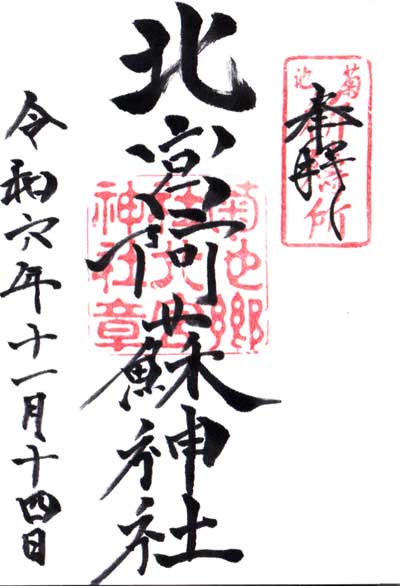 奉拝
北宮阿蘇神社
令和六年十一月十四日
菊池郷
神社章